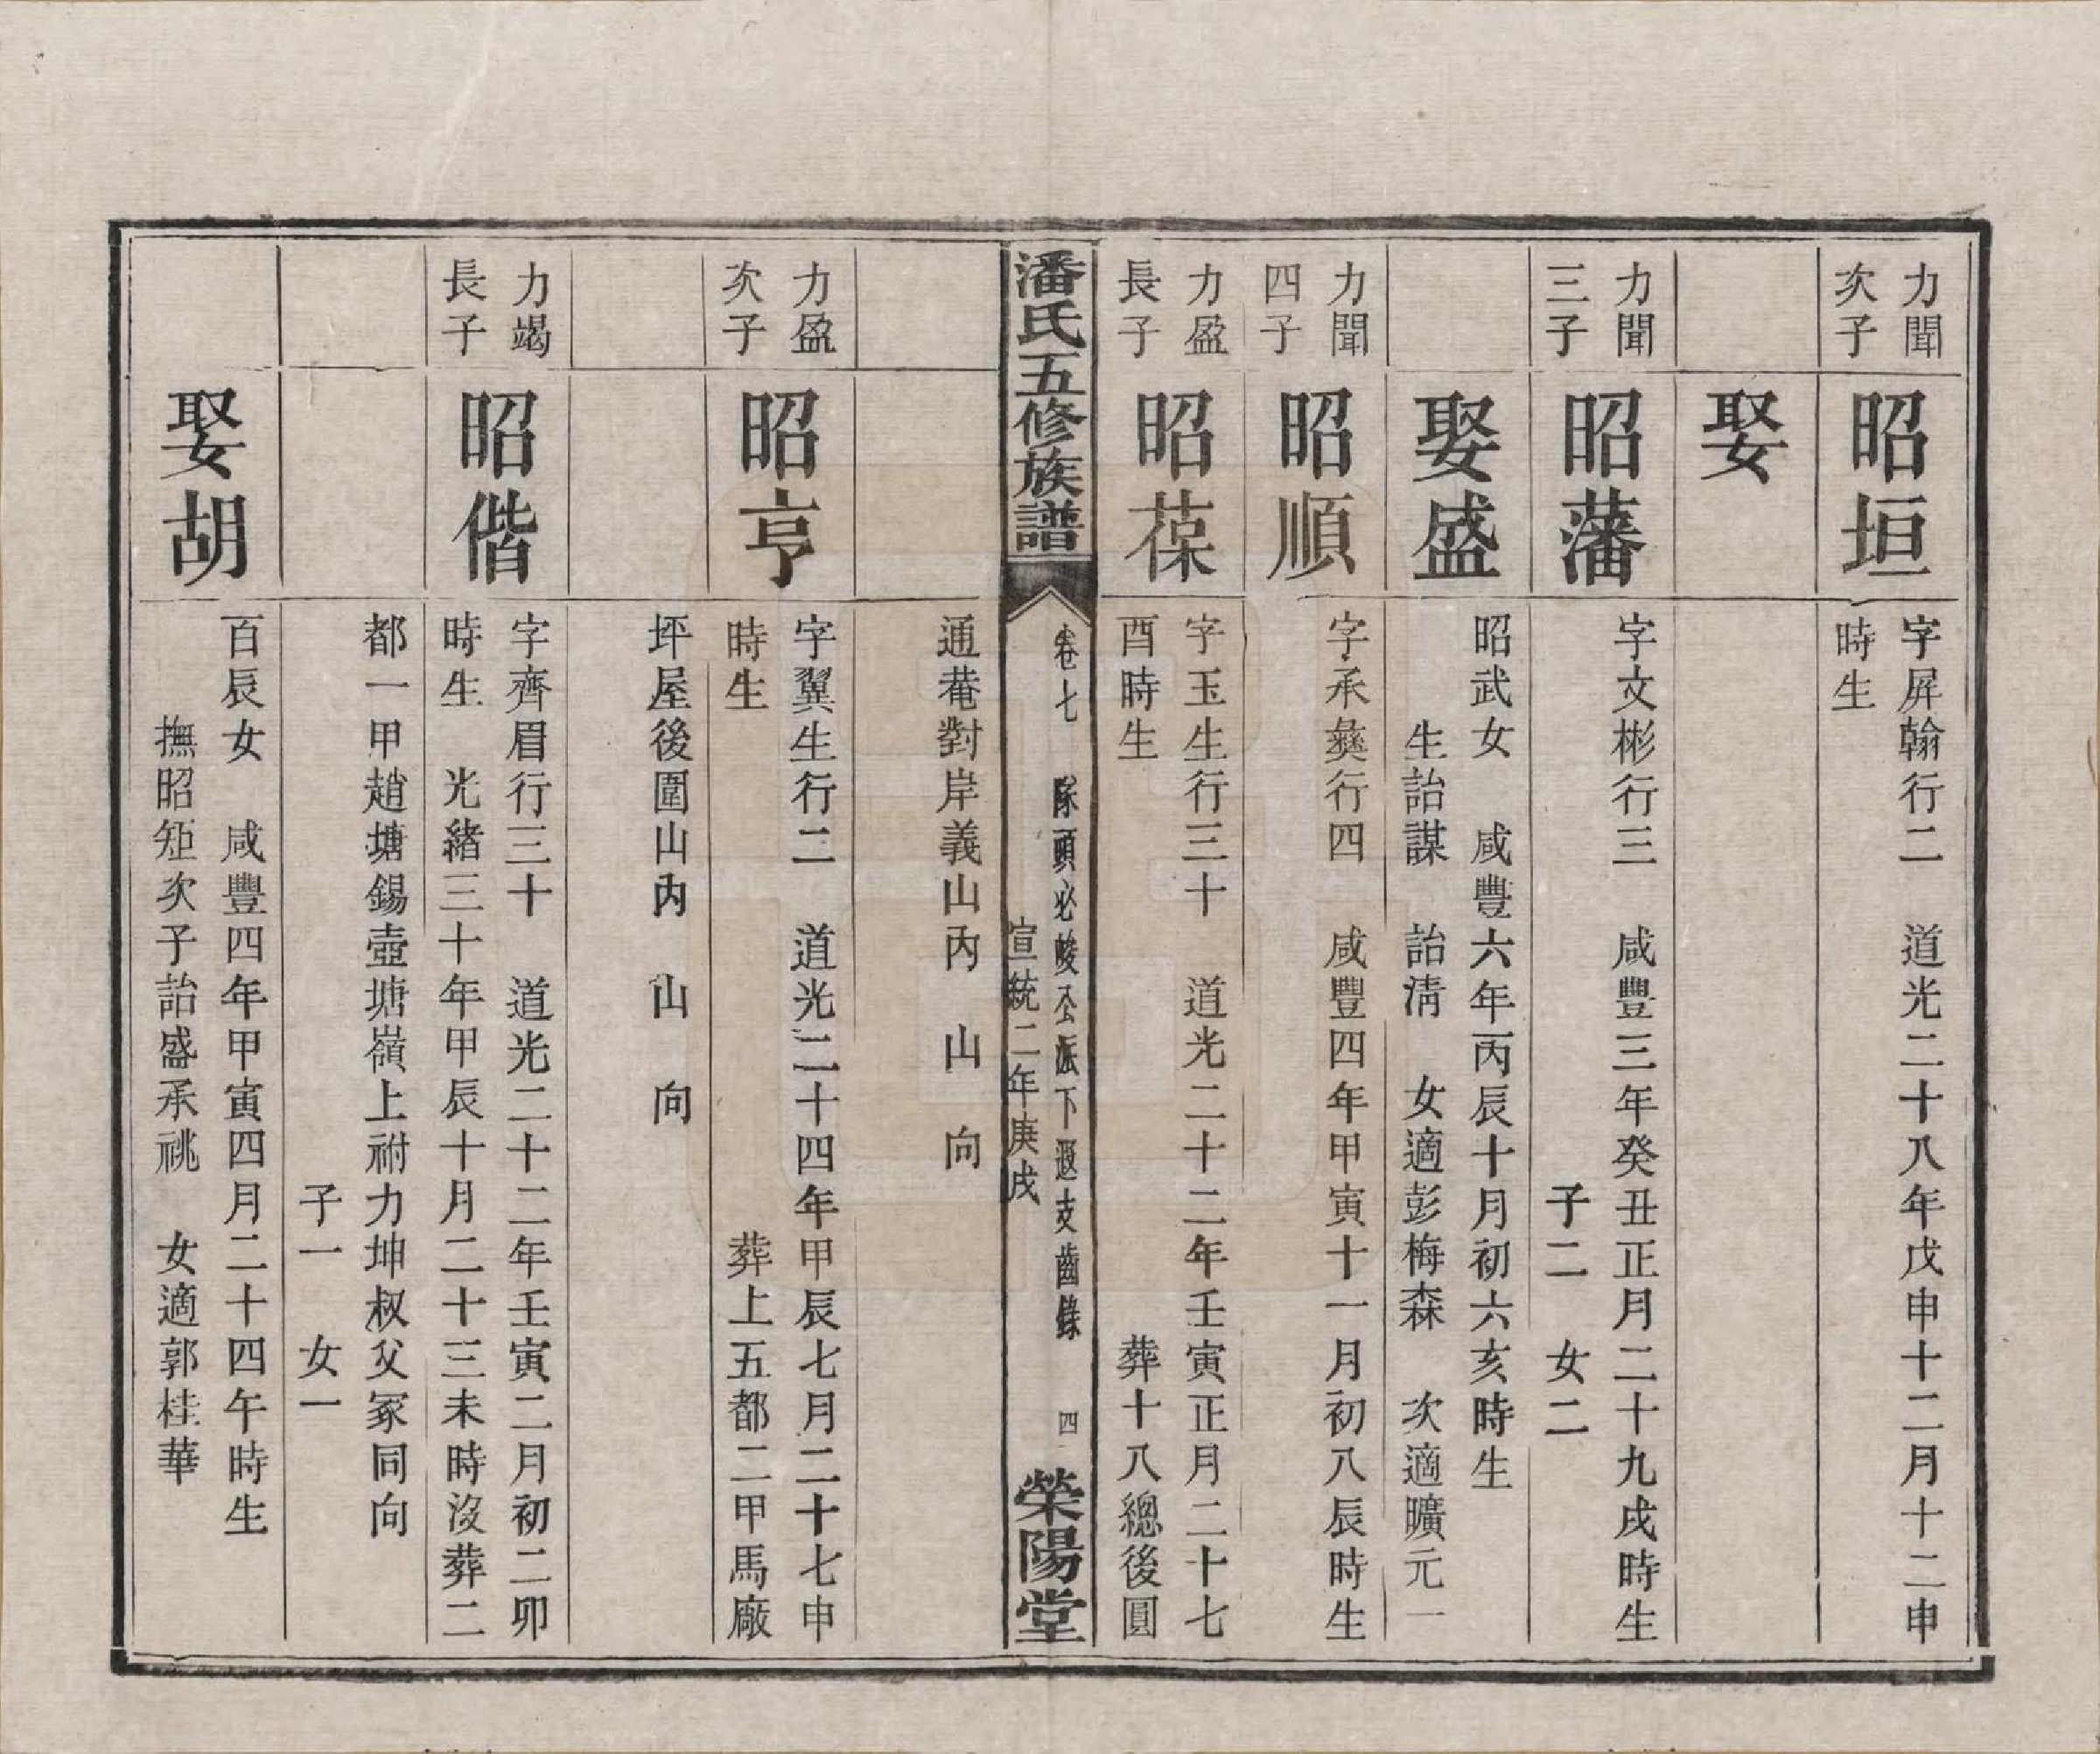 力聞
次子
昭垣
字屏翰行二　道光二十八年戊申十二月十二申
時生
娶
力聞
三子
昭藩
字文彬行三　咸豐三年癸丑正月二十九戌時生
子二　女二
娶盛
昭武女　咸豐六年丙辰十月初六亥時生
生詒謀　詒清　女適彭梅森　次適曠元一
力聞
四子
昭順
字承彝行四　咸豐四年甲寅十一月初八辰時生
力盈
長子
昭葆
字玉生行三十　道光二十二年壬寅正月二十七
酉時生　葬十八總後圓
潘氏五修族譜
卷七　隊頭必峻公派下遐支齒錄　四
宣統二年庚戌
榮陽堂
通菴對岸義山內　山　向
力盈
次子
昭亨
字翼生行二　道光二十四年甲辰七月二十七申
時生　葬上五都二甲馬廠
坪屋後圍山內　山　向
力竭
長子
昭偕
字齊眉行三十　道光二十二年壬寅二月初二卯
時生　光緒三十年甲辰十月二十三未時沒葬二
都一甲趙塘錫壺塘嶺上祔力坤叔父冢同向
子一　女一
娶胡
百辰女　咸豐四年甲寅四月二十四午時生
撫昭矩次子詒盛承祧　女適郭桂華